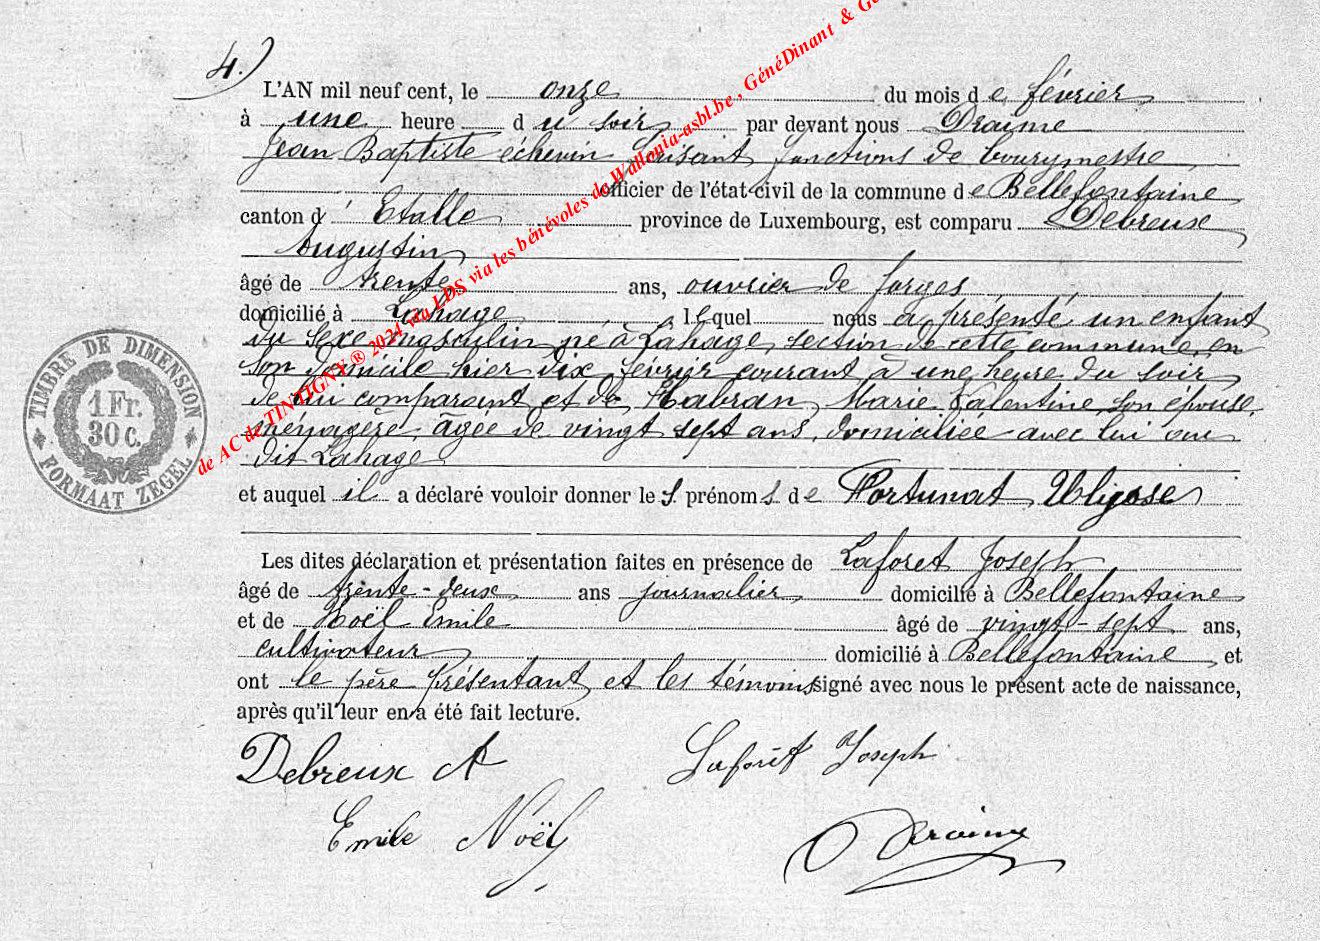 4.)
L'AN mil neuf cent, le onze du mois de février
à une heure du soir par devant nous Draime
Jean Baptiste échevin faisant fonctions de bourgmestre
officier de l'état civil de la commune de Bellefontaine
canton d'Etalle province de Luxembourg, est comparu Debreux
Augustin
âgé de trente ans, ouvrier de forges
domicilié à Lahage, lequel nous a présenté un enfant
du sexe masculin né à Lahage, section de cette commune, en
son domicile hier dix février courant à une heure du soir
de lui comparant et de Habran, Marie Valentine, son épouse,
ménagère, âgée de vingt sept ans, domiciliée avec lui au
dit Lahage
et auquel il a déclaré vouloir donner les prénoms de Fortunat Ulysse
Les dites déclaration et présentation faites en présence de Laforet Joseph
âgé de trente-deux ans journalier, domicilié à Bellefontaine
et de Noël Emile âgé de vingt-sept ans,
cultivateur domicilié à Bellefontaine, et
ont le père présentant et les témoins signé avec nous le présent acte de naissance,
après qu'il leur en a été fait lecture.
Debreux A
Laforêt Joseph
Emile Noël
Draime
TIMBRE DE DIMENSION
1 Fr.
30 C.
FORMAAT ZEGEL
de AC de TINTIGNY ® 2021 via LDS via les bénévoles de Wallonia-asbl.be, GénéDinant &